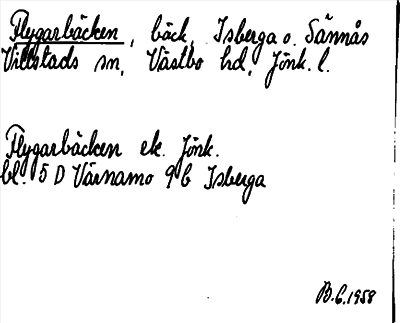 Flygarbäcken, bäck, Isberga o. Sännås
Villstads sn, Västbo hd, Jönk. l.
Flygarbäcken ek. Jönk.
bl. 5 D Värnamo 9 b Isberga
B.G. 1958